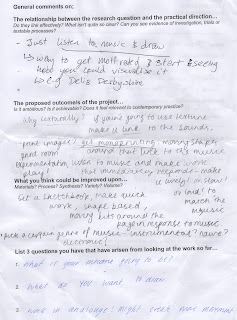 General comments on;
The relationship between the research question and the practical direction...
Do they link effectively? What isn't quite so clear? Can you see evidence of investigation, trials or testable processes?
- Just listen to music & draw
↳ Way to get motivated & start seeing
how you could visualise it
↳ e.g Delia Derbyshire
The proposed outcomes of the project...
Is it ambitious? Is it achievable? Does it feel relevant to contemporary practice?
Why culturally? if you're going to use texture
make it link to the sounds.
- print images? get monoprinting moving shapes
print room around that link to the music
experimentation listen to music and make work
play! that immediately responds - make
What you think could be improved upon...
it lively or slow!
Materials? Process? Synthesis? Variety? Volume?
or loud! to
Get a sketchbook, make quick match the
work, shape based, music
moving bits around the
page in response to music
pick a certain genre of music - instrumental? nature?
electronic?
List 3 questions you have that have arisen from looking at the work so far...
1. What is your outcome going to be?
2. What do you want to draw
3. work in analogue! might feel more natural